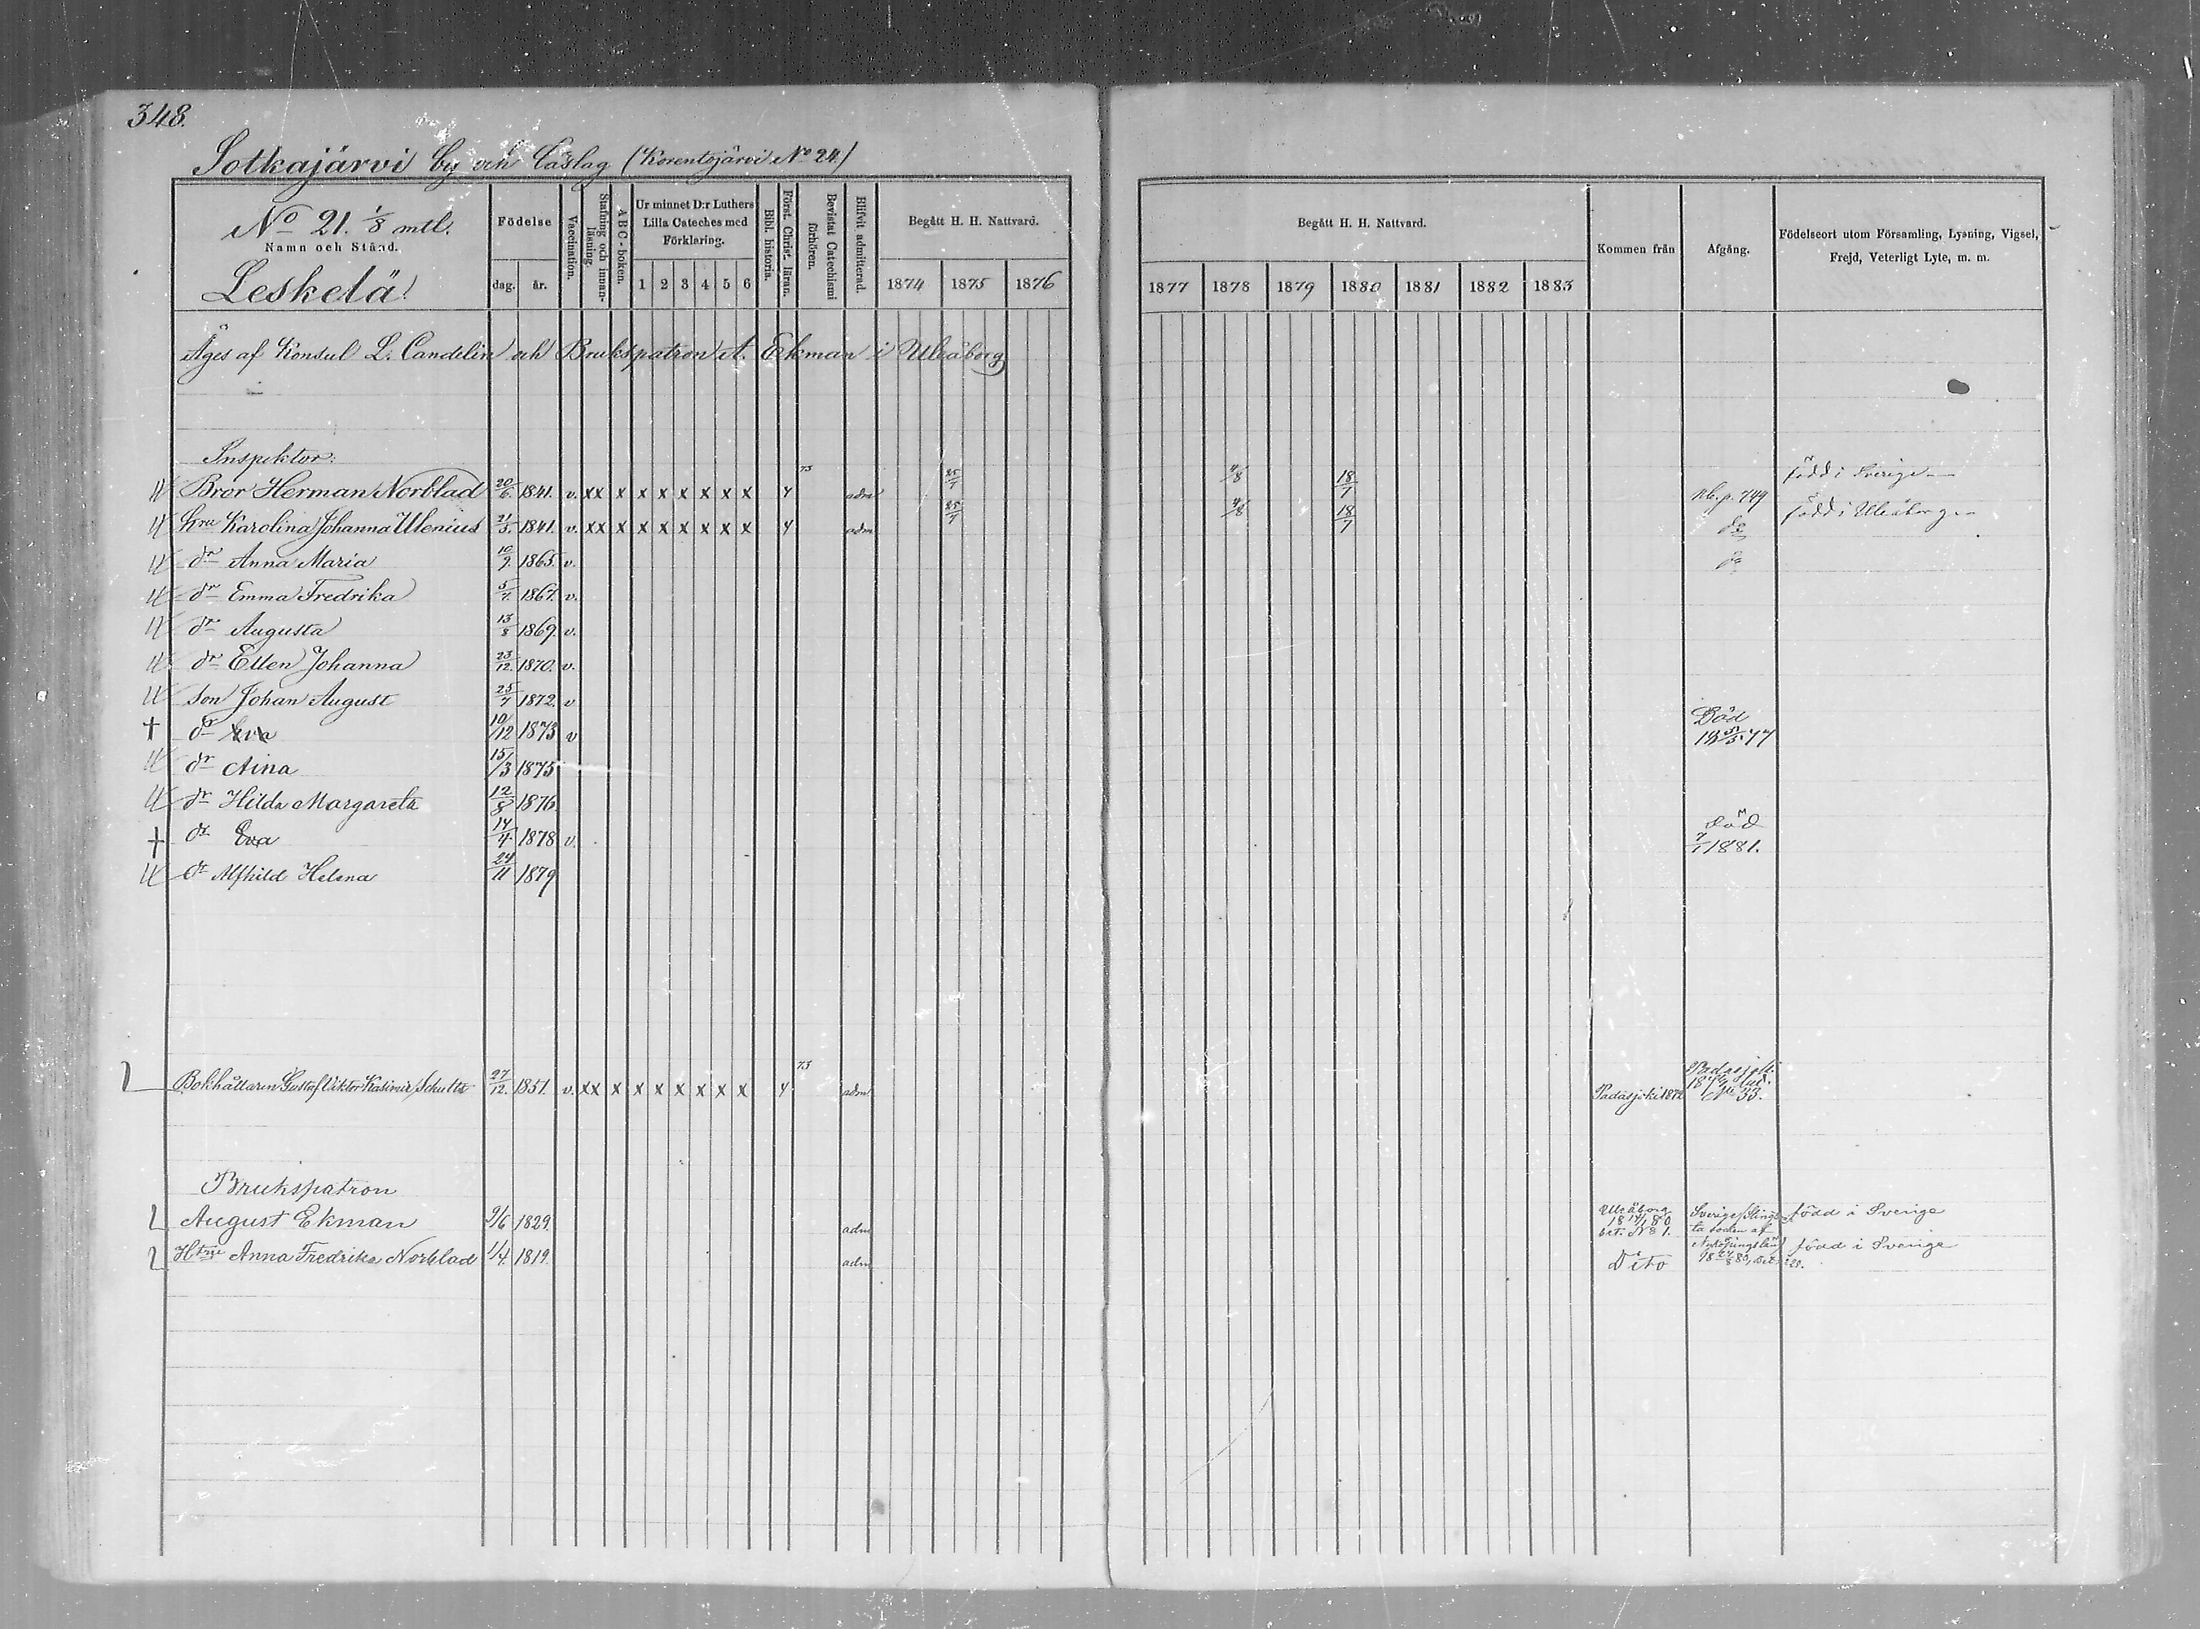 348.
Sotkajärvi by och Läslag (Korentojärvi No 24)
No 21. 1/8 mtl.
Namn och Stånd.
Leskelä
Födelse
dag. år.
Vaccination.
Stafning och innan-
läsning.
ABC-boken.
Ur minnet D:r Luthers
Lilla Cateches med
Förklaring.
1 2 3 4 5 6
Bibl. historia.
Först. Christ. läran.
Bevistat Catechismi
förhören.
Blifvit admitterad.
Begått H. H. Nattvard.
1874 1875 1876
Begått H. H. Nattvard.
1877 1878 1879 1880 1881 1882 1883
Kommen från
Afgång.
Födelseort utom Församling, Lysning, Vigsel,
Frejd, Veterligt Lyte, m. m.
Äges af Konsul L. Candelin och Brukspatron A. Ekman i Uleåborg
Inspektor:
Bror Herman Norblad 20/6 1841. v. xx x x x x x x x 4 73 adm 25/7 4/8 18/7 nb. p. 749 född i Sverige
Hru Karolina Johanna Ulenius 21/5. 1841. v. xx x x x x x x x 4 adm 25/7 4/8 18/7 do född i Uleåborg
dr Anna Maria 10/9. 1865. v. do
dr Emma Fredrika 5/7. 1867. v.
dr Augusta 13/8 1869. v.
dr Ellen Johanna 23/12. 1870. v.
son Johan August 25/7 1872. v
† dr Eva 10/12 1873 v Död 77
dr Aina 15/3 1875
dr Hilda Margareta 12/8 1876
† dr Eva 14/4 1878 v. död 7/1 1881.
dr Alfhild Helena 24/11 1879
Bokhållaren Gustaf Viktor Kasimir Schultz 27/12. 1851. v. xx x x x x x x x 4 73 adm Padasjoki 1872 Padasjoki
No 33.
Brukspatron
August Ekman 9/6 1829. adm Uleåborg
18 14/1 80
bet. No 1. Sverige född i Sverige
Htru Anna Fredrika Norblad 1/4. 1819. adm Dito Nyköpings län född i Sverige